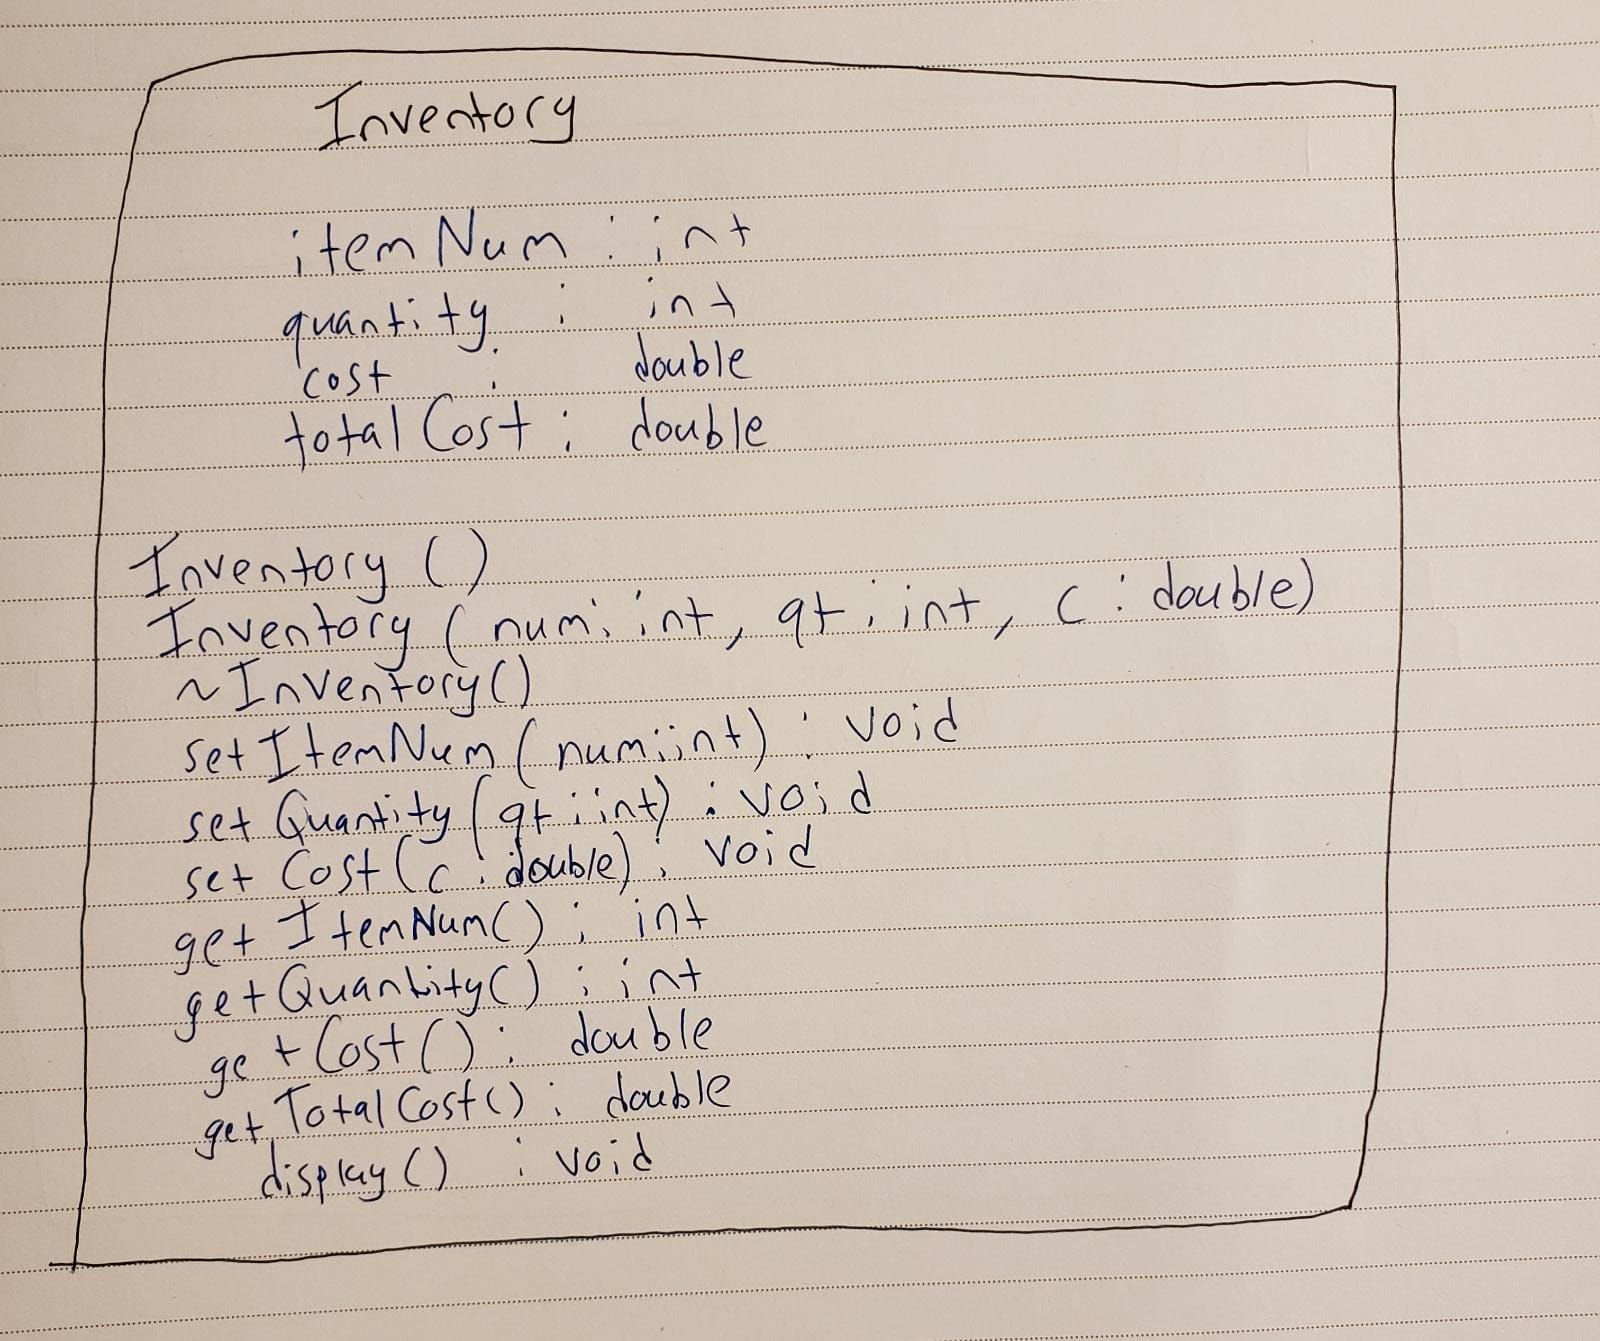 Inventory
itemNum : int
quantity : int
cost : double
totalCost : double
Inventory ()
Inventory (num: int, qt: int, c: double)
~Inventory()
setItemNum (num:int) : void
setQuantity (qt:int) : void
setCost (c: double) : void
getItemNum() : int
getQuantity() : int
getCost() : double
getTotalCost() : double
display() : void